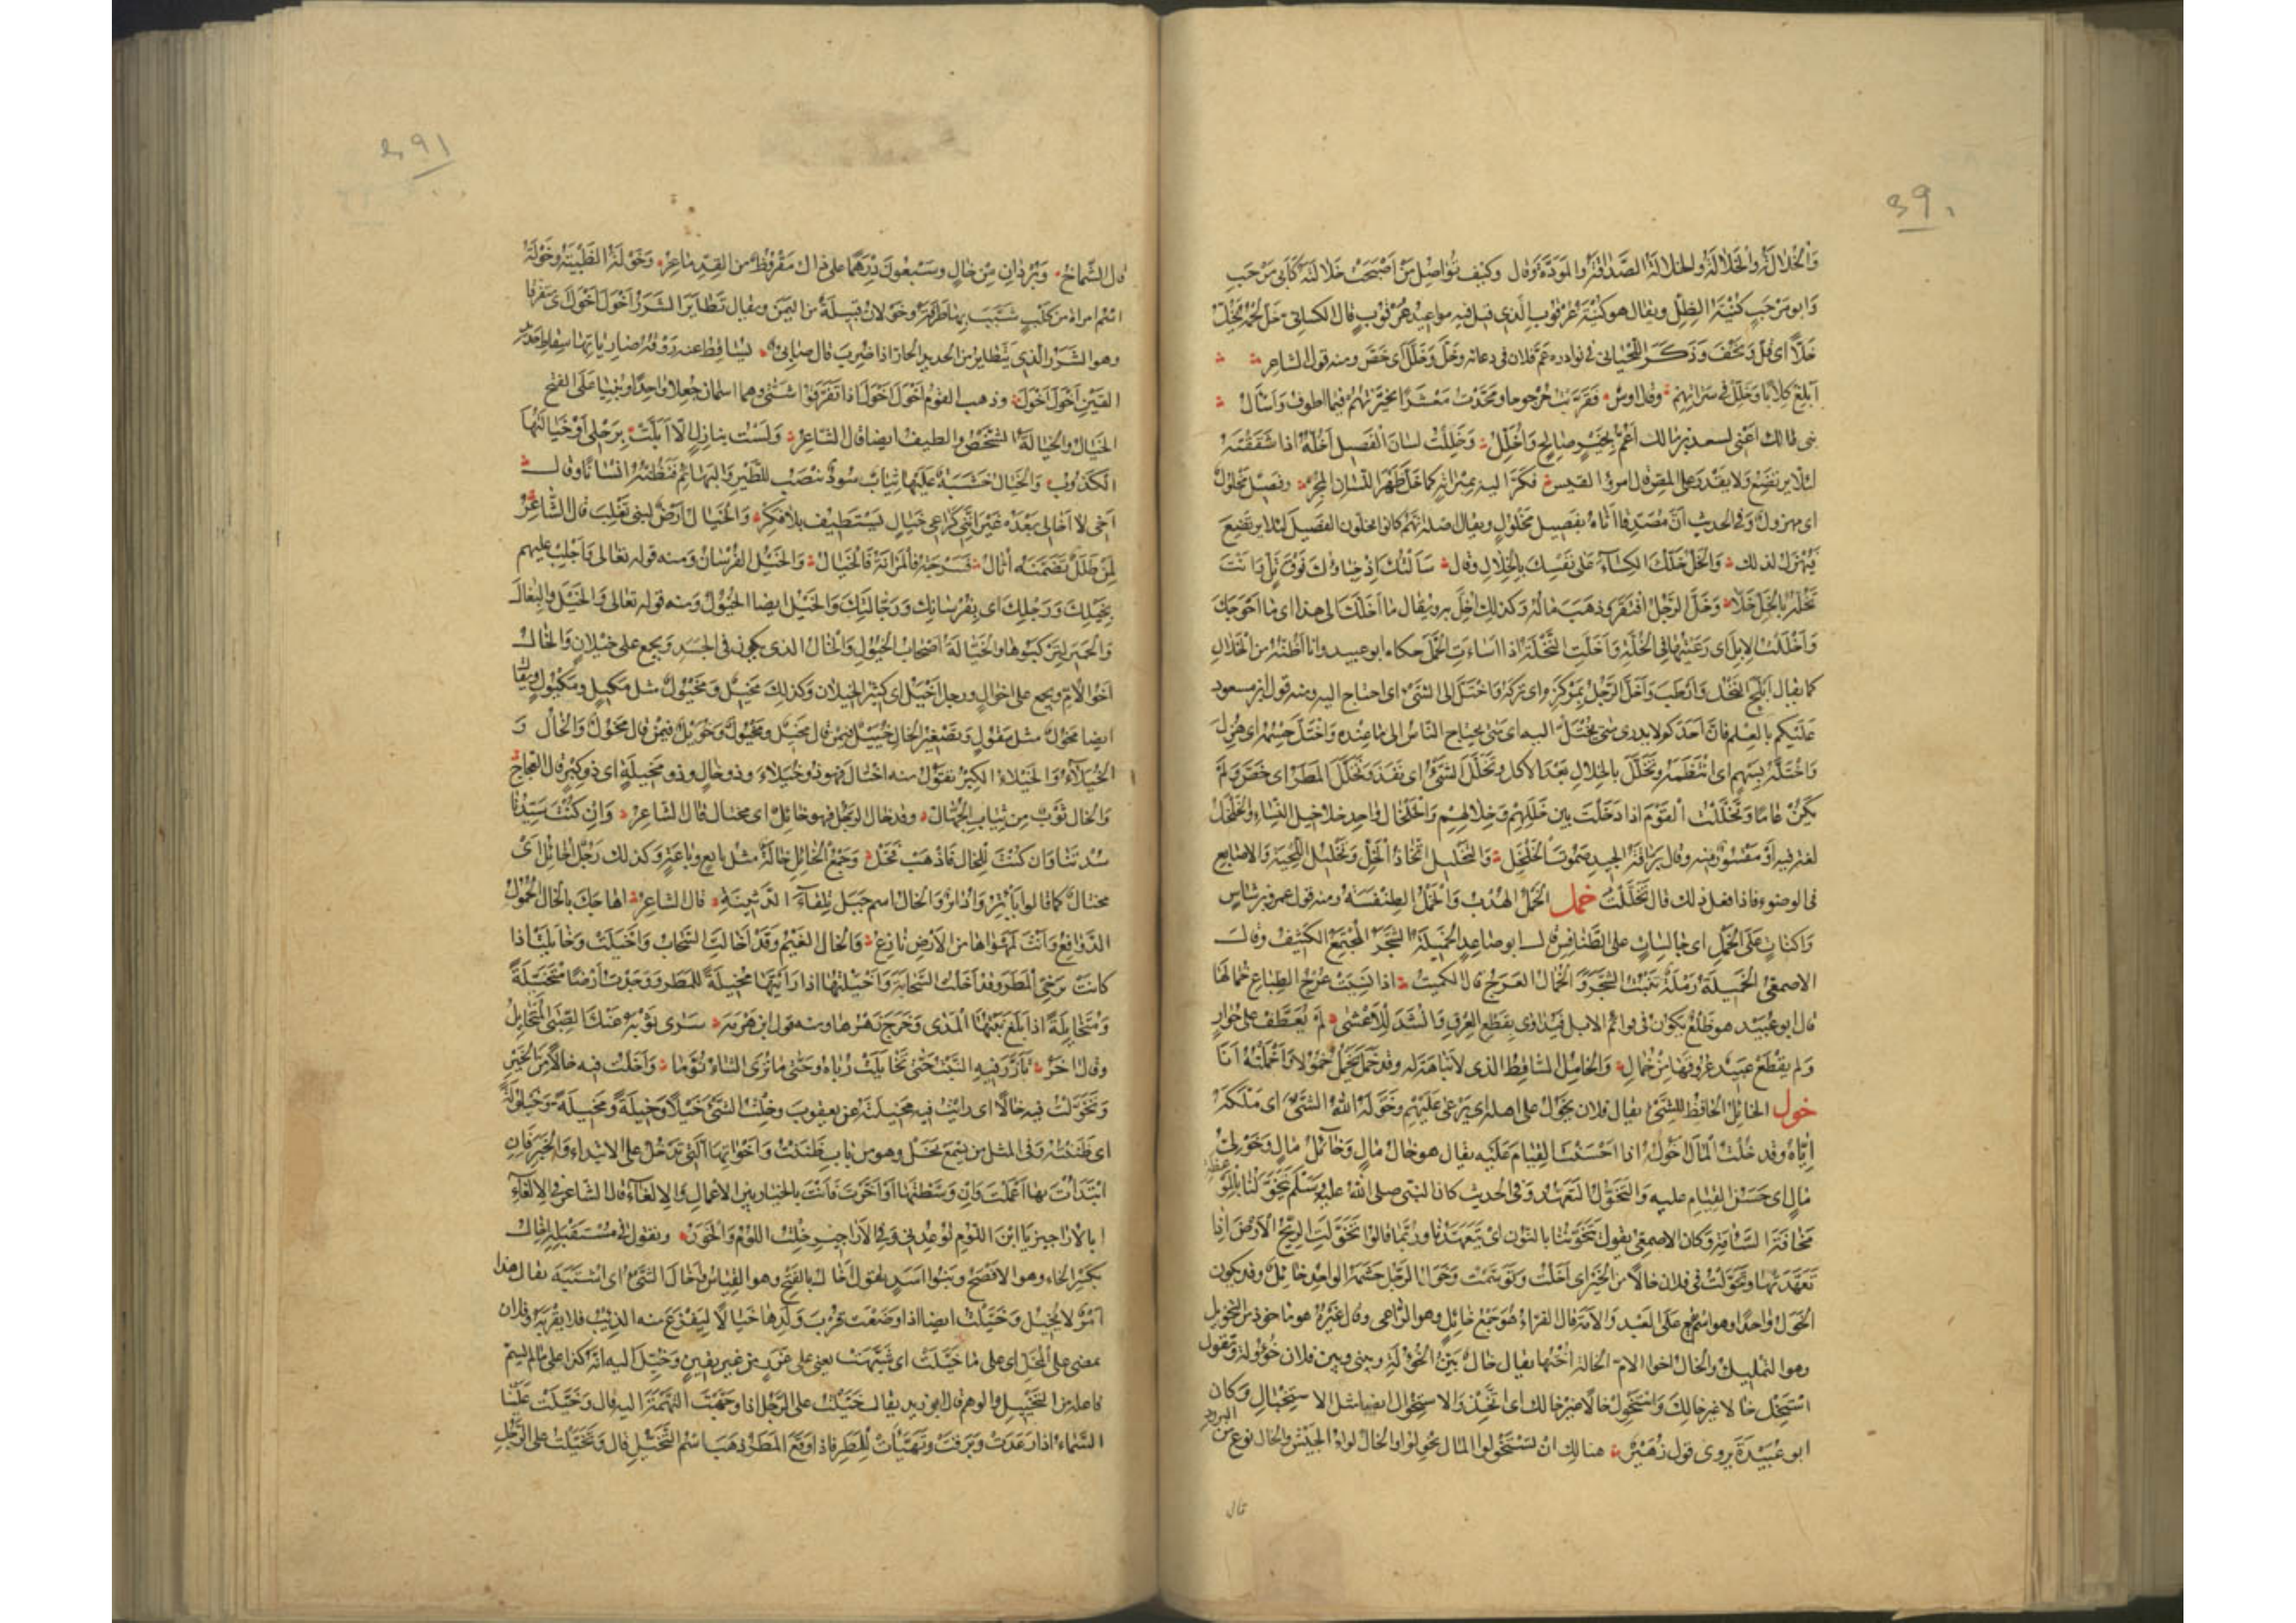 39۰
وَالْخُلَالَةُ وَالْخَلَالَةُ وَالْخِلَالَةُ الصَّدَاقَةُ وَالمَوَدَّةُ وَقال وَكَيْفَ تُوَاصِلُ مَنْ أَصْبَحَتْ خَلَالَتُهُ كَأَبِي مَرْحَبِ
وَابو مَرْحَبٍ كُنْيَةُ الظِلِّ ويقال هو كُنْيَةُ عُرْقُوبِ الَّذي قيل فيه مواعيد عُرْقُوبٍ قال الكسائي خَلَّ لَحْمُهُ يَخِلُّ
خَلًّا اى قَلَّ وَنَحُفَ وَذَكَرَ اللّحْيَانِى فى نوادره عَمَّ فلان فى دعائه وخَلَّ وَخَلَّلَ اى خَصَّ ومنه قول الشاعر
اَبْلِغْ كِلَابًا وَخَلِّلْ فى سَرَاتِهِمْ وقال اوس فَقَرَّبْتُ حُرْجُوجًا وَمَجَّدْتُ مَعْشَرًا تَخَيَّرْتُهُمْ فيما اطوف وَاَسْأَلُ
بَنِى مَالك اَعْنِى لسعد بن مَالك اَعُمُّ بِخَيْرٍ صَالِحٍ وَاُخَلِّلُ وَخَلَلْتُ لسَانَ الْفَصِيلِ اَخُلُّهُ اذا شَقَقْتَهُ
لئلّا يرتَضِعَ وَلا يَقْدِرَ على المَصّ قال امرؤ القيس فَكَرَّ اليه بِمِبْرَاتِهِ كما خَلَّ ظَهْرَ اللّسَان الْمُجِرّ وفصيل مخلول
اى مهزول وَفى الحديث اَنَّ مُصَدِّقًا اَتَاهُ بفَصِيلٍ مَخْلُولٍ ويقال اصله اَنَّهم كانوا يخلّون الفَصِيلَ لئلا يرتَضِعَ
فَيُهْزَلُ لذلك وَالْخَلُّ خَلُّكَ الكِسَاءَ عَلَى نَفْسِكَ بِالْخِلَالِ وقال سَأَلْتُكَ اِذْ خِبَاؤُكَ فَوْقَ تَلٍّ وَاَنْتَ
تَخُلُّهُ بِالْخَلِّ خَلَّا وَخَلَّ الرَّجُلُ افْتَقَرَ وَذهَبَ مَالُهُ وَكذلك اُخِلَّ به ويقال مَا اَخَلَّكَ الى هذا اى مَا اَحْوَجَكَ
وَاَخْلَلْتُ الإبِلَ اى رَعَيْتُهَا فى الْخُلَّةِ وَاَخَلَّتِ النَّخْلَةُ اذا اسَاءَتِ الْحَمْلَ حكاه ابو عبيد وانا اَظُنُّهُ من الْخَلَالِ
كما يقال اَبْلَحَ النَّخْلُ وَاَرْطَبَ وَاَخَلَّ الرَّجُلُ بمَرْكَزِهِ اى تَرَكَهُ وَاخْتَلَّ الى الشَّئ اى احتاج اليه ومنه قول ابن مسعود
عَلَيْكم بالعِلْمِ فانّ اَحَدَكُم لا يدرى متى يُخْتَلُّ اليه اى متى يحتاج النَّاسُ الى مَا عنده وَاخْتَلَّ جِسْمُهُ اى هُزِلَ
وَاخْتَلَّهُ بِسَهْمٍ اى انْتَظَمَهُ وَتَخَلَّلَ بِالْخِلَالِ بَعْدَ الاكل وَتَخَلَّلَ الشَّئ اى نَفَذَ وَتَخَلَّلَ الْمَطَرُ اى خَصَّ وَلَمْ
يَكُنْ عَامًّا وَتَخَلَّلْتُ الْقَوْمَ اذا دَخَلْتَ بين خَلَلِهِمْ وَخِلَالِهِمْ وَالْخَلْخَالُ وَاحِد خلاخيل النّسَاءِ وَالْخَلْخَلُ
لغة فيه اَوْ مَقْصُور منه وقال بَرَّاقَةُ الجيد صَمُوتُ الْخَلْخَلِ وَالتَّخْلِيلُ اتّخَاذُ الْخَلِّ وَتَخْلِيلُ اللِّحْيَة وَالاصَابِع
فى الوضوء فاذا فعل ذلك قال تَخَلَّلْتُ خمل الْخَمْلُ الْهُدْبُ وَالْخَمْلُ الطِّنْفِسَةُ ومنه قول عمرو بن شَاسٍ
وَ كِنَانٍ عَلَى الْخَمْلِ اى جَالسَاتٍ على الطَّنَافِس قال ابو صَاعِدٍ الْخَمِيلَةُ الشَّجَرُ الْمُجْتَمِعُ الكَثِيفُ وقال
الاصمعى الْخَمِيلَةُ رَمْلَةٌ تُنْبِتُ الشَّجَرَ وَالْخُمَالُ العَرَجُ قال الكميت اذا نَسِيَتْ عُرْجُ الضِّبَاعِ خُمَالَهَا
قال ابو عُبَيد هو ظَلْعٌ يَكُون فى قوائم الابل فَيُدَاوَى بِقَطْعِ العِرْقِ وَاَنْشَدَ لِلْأَعْشَى لَمْ تُعَطَّفْ على حُوَارٍ
وَلم يقْطَعْ عبَيْد عُروقَهَا مِنْ خُمَالِ وَالْخَامِلُ السَّاقِط الذى لا نَبَاهَةَ له وقد خَمَلَ يَخْمُلُ خُمُولًا وَاَخْمَلْتُهُ اَنَا
خول الْخَائِلُ الْحَافِظ لِلشَّئ يقال فلان يَخُولُ على اهله اى يَرْعَى عَلَيْهِم وَخَوَّلَهُ اللهُ الشَّئَ اى مَلَّكَهُ
اِيَّاهُ وقد خُلْتُ الْمَالَ اَخُولُهُ اذا اَحْسَنْتَ القِيَامَ عَلَيْه يقال هو خَالُ مَالٍ وَخَائِلُ مَالٍ وَخَوْلِيُّ
مَالٍ اى حَسَنُ القِيَامِ عليه وَالتَّخَوُّلُ التَعَهُّد وَفى الحديث كان النبّى صلى الله عليه وسَلّم يَتَخَوَّلُنَا بِالْمَوْعِظَة
مَخَافَةَ السَّآمَةِ وَكان الاصمعى يقول يَتَخَوَّنُنَا بالنون اى يَتَعَهَّدُنَا وَرُبَّمَا قالوا تَخَوَّلَتِ الرِّيحُ الْاَرْضَ اذا
تَعَهَّدَتْهَا وَتَخَوَّلْتُ فى فلان خالًا من الْخَيْر اى اَخَلْتُ وَتَوَسَّمْتُ وَخَوَلُ الرَّجُل حَشَمُه الواحد خَائِلٌ وقد يكون
الْخَوَلُ وَاحدًا وهو اسْمٌ يقع عَلَى العَبْد وَالامَة قال الفرّاء هُوَ جَمْعُ خَائِلٍ وهو الرَّاعى وقال غَيْرُهُ هو مأخوذ من التخويل
وهو التمليك وَالخَال اخو الامّ وَالخالة اُخْتُهَا يقال خَالٌ بَيّنُ الْخُؤُلَةِ وبينى وبين فلان خُؤُولة وَتقول
اسْتَخِلْ خالًا غير خَالِكَ وَاسْتَخْوِلْ خَالًا غيرَ خَالك اى اتَّخِذْ وَالاستِخْوَال ايضا مثل الاستِخْبَال وَكان
ابو عُبَيْدَةَ يروى قول زُهَيْر هنالك ان يُسْتَخْوَلُوا المَال يُخْوِلُوا وَالخَالُ لِوَاءُ الجَيْشِ وَالخال نوع من البرود
قال
391
قال الشَّمَاخ وَبُرْدَانِ مِنْ خَالٍ وَسَبْعُونَ دِرْهَمًا على ذاك مَقْرُوظٌ من القِدِّ مَاعِزُ وَخَوْلَةُ الظَّبْيَةُ وخَوْلَةُ
اسْم امراة من كَلْبٍ شَبَّبَ بها طَرَفَةُ وَخَوْلَانُ قَبِيلَةٌ من اليَمَن ويقال تَطَايَرَ الشَّرَرُ اَخْوَلَ اَخْوَلَ اى مُتَفَرِّقًا
وهو الشَرَرُ الَّذى يَتَطاير من الحديد الحارّ اذا ضُرِبَ قال ضَابِئ يُسَاقِطُ عنه رَوْقُهُ ضارياتها سِقَاطَ حديد
القَيْنِ اَخْوَلَ اَخْوَلَا وذهب القومُ اَخْوَلَ اَخْوَلَ اذا تَفَرَّقُوا شَتَّى وهما اسمان جُعِلَا وَاحِدًا وَبُنِيَا عَلَى الفَتْح
الخَيَالُ وَالخَيَالَةُ الشَّخْصُ وَالطيف ايضا قال الشّاعِر وَلَسْتُ بنازِلٍ اِلَّا اَلَمَّتْ بِرَحْلِى اَوْ خَيَالَتُهَا
الْكَذُوبُ وَالخَيَال خَشَبَةٌ عَلَيْهَا ثِيَابٌ سُودٌ تُنْصَبُ لِلطَّيْرِ وَالبَهَائِمِ فَتَظُنُّهُ اِنسَانًا وقال
اَخِى لا اَخَا لِى بَعْدَهُ غَيْرَ اَنَّنِى كَرَاعِى خَيَالٍ يَسْتَطِيفُ بِلَا فِكْرِ وَالخَيَال اَرْضٌ لبنى تَغْلِبَ قال الشَّاعِرُ
لِمَنْ طَلَلٌ تَضَمَّنَهُ اُثَالُ فَسَرْحَةُ فَالْمَرَانَةُ فَالْخَيَالُ وَالْخَيْلُ الفُرْسَانُ ومنه قوله تعالى وَاَجْلِبْ عليهم
بِخَيْلِكَ وَرَجْلِكَ اى بِفُرْسَانِكَ وَرَجَّالَتِكَ وَالْخَيْلُ ايضا الْخُيُولُ وَمنه قوله تعالى وَالْخَيْلَ وَالبِغَالَ
وَالْحَمِيرَ لِتَرْكَبُوهَا وَالْخَيَّالَةُ اَصْحَابُ الْخُيُولِ وَالْخَالُ الذى يكون فى الْجَسَدِ وَيجمع على خِيلَانٍ وَالْخَالُ
اَخُو الْاُمِّ ويجمع على اخوالٍ ورجل اَخْيَلُ اى كثير الخِيلَان وَكذلك مَخِيلٌ وَمَخْيُولٌ مثل مَكِيلٍ وَمَكْيُولٍ ويقال
ايضا مَخُولٌ مثل مَقُولٍ وَتصْغِير الخَالِ خُيَيْلٌ فيمن قال مَخِيلٌ وَمَخْيُولٌ وَخُوَيْلٌ فيمن قال مَخُولٌ وَالْخَالُ وَ
الْخُيَلَاءُ وَالْخِيَلَاءُ الكِبْرُ تقول منه اخْتَال فهو ذو خُيَلَاءَ وذو خَالٍ وذو مَخِيلَةٍ اى ذو كِبْرٍ قال العجاج
وَالخَال ثَوْبٌ مِنْ ثِيَابِ الْجُهَّال وقد خَالَ الرَّجُل فهو خَائِلٌ اى مختال قال الشاعر وَاِنْ كُنْتَ سَيِّدَنَا
سُدْتَنَا وَاِن كنْتَ لِلْخَالِ فَاذْهَبْ فَخُلْ وَجَمْعُ الْخَائِلِ خَالَةٌ مثل بايع وبَاعَةٍ وَكذلك رَجُلٌ اُخَائِل اى
مختالٌ كما قالوا اُبَاتِرٌ وَاُدَابِرٌ وَالخَالُ اسم جَبَل تِلْقَاءَ الدَّثِينَةِ قال الشاعِر اهَاجَكَ بِالْخَالِ الْحُمُولُ
الدَّوَافِعُ وَاَنْتَ لِمَهْوَاهَا مِنَ الأَرْضِ نَازِعُ وَالخال الغَيْمُ وَقَدْ اَخَالَتِ السَّحَابُ وَاَخْيَلَتْ وَخَايَلَتْ اذا
كانَتْ تُرْجِى الْمَطَرَ وقد اَخَلْتُ السَّحَابَةَ وَاَخْيَلْتُهَا اذا رَاَيْتَهَا مُخِيلَةً للمَطَر وَوَجَدْتُ اَرْضًا مُتَخَيِّلَةً
وَمُتَخَايِلَةً اذا بَلَغَ نَبْتُهَا الْمَدَى وَخَرَجَ زَهْرُها ومنه قول ابن هَرْمَةَ سَرَى ثَوْبَهُ عَنْكَ الصِّبَى الْمُتَخَايِلُ
وَقَالَ اٰخَرُ تَأَزَّرَ فيهِ النَّبْتُ حَتَّى تَخَايَلَتْ رُبَاهُ وَحَتَّى مَا تُرَى الشَاءُ نُوَّمَا وَاَخَلْتُ فيه خَالًا مِنَ الْخَيْرِ
وَتَخَوَّلْتُ فيه خَالًا اى رايْت فِيه مَخِيلَتَهُ عن يعقوب وخِلْتُ الشَّئَ خَيْلًا وَخِيلَةً وَمَخِيلَةً وَخَيْلُولَةً
اى ظَنَنْتُهُ وَفى المثل من يَسْمَعْ يَخَلْ وهو من بَاب ظَنَنْتُ وَاَخَوَاتِهَا الَّتِى تَدْخُلُ على الابتداء وَالْخَبَرِ فَاِن
ابْتَدَأْتَ بها اَعْمَلْتَ وَاِن وَسَّطْتَهَا اَوْ اَخَّرْتَ فَاَنْتَ بالخيار بين الاِعْمَالِ وَالاِلْغَاءِ قال الشاعر فى الاِلْغَاءِ
اَبِالْاَرَاجِيزِ يَا ابْنَ اللُّؤْمِ تُوعِدُنِى وَفِى الْاَرَاجِيزِ خِلْتُ اللُّؤْمُ وَالْخَوَرُ وتقول فى مُسْتَقْبَلِهِ اِخَال
بِكَسْرِ الخَاء وهو الافْصَحُ وَبَنُو اَسَدٍ يقول اَخَالُ بالفَتْحِ وهو القِيَاسُ وَاَخَالَ الشَّئُ اى اشْتَبَهَ يقال هذا
اَمْرٌ لا يُخِيلُ وَخَيَّلْت ايضا اذا وضَعْتَ قُرْبَ وَلَدِهَا خَيَالًا لِيَفْزَعَ منه الذئب فلا يَقْرَبَه وفلان
يمضى على الْمُخَيَّلِ اى على مَا خَيَّلَتْ اى شَبَّهَتْ يعنى على غَرَرٍ من غير يقين وَخُيِّلَ اليه اَنَّه كذا على مَا لم يُسَمَّ
فاعله من التَّخْيِيلِ وَالوهم قال ابو زيد يقال خَيَّلْتُ على الرَّجُل اذا وَجَّهْتَ التُّهَمَةَ اليه قال وَخَيَّلَتْ عَلَيْنَا
السَّمَاء اذا رَعَدَتْ وَبَرَقَتْ وَتَهَيَّأَتْ لِلْمَطَرِ فاذا وَقَعَ المَطَرُ ذَهَبَ اسْمُ التَّخَيُّلِ قال وَتَخَيَّلْت على الرَّجُلِ